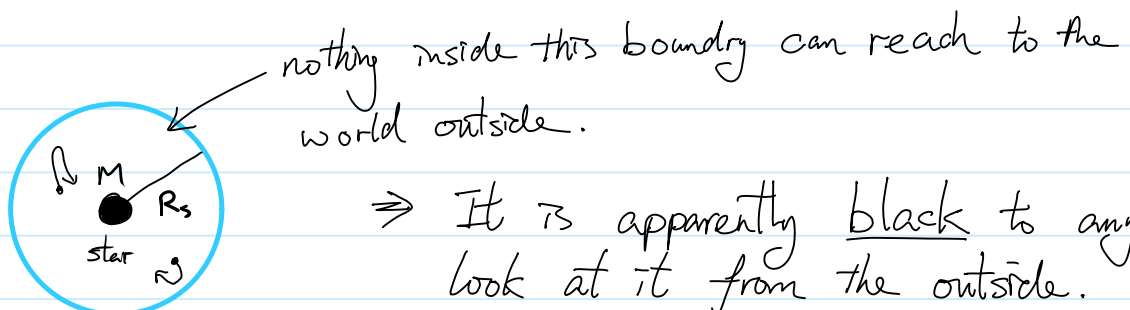 nothing inside this boundry can reach to the
world outside.
M
Rs
star
⇒ It is apparently black to any
look at it from the outside.